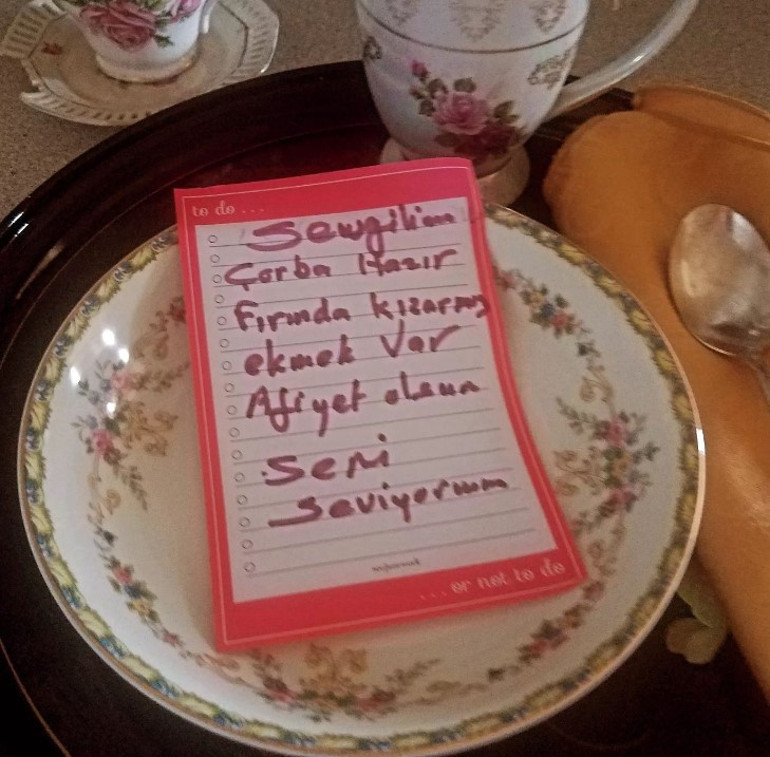 to do ...
Sevgilim
Çorba Hazır
Fırında kızarmış
ekmek Var
Afiyet olsun
Seni
Seviyorum
... or not to do